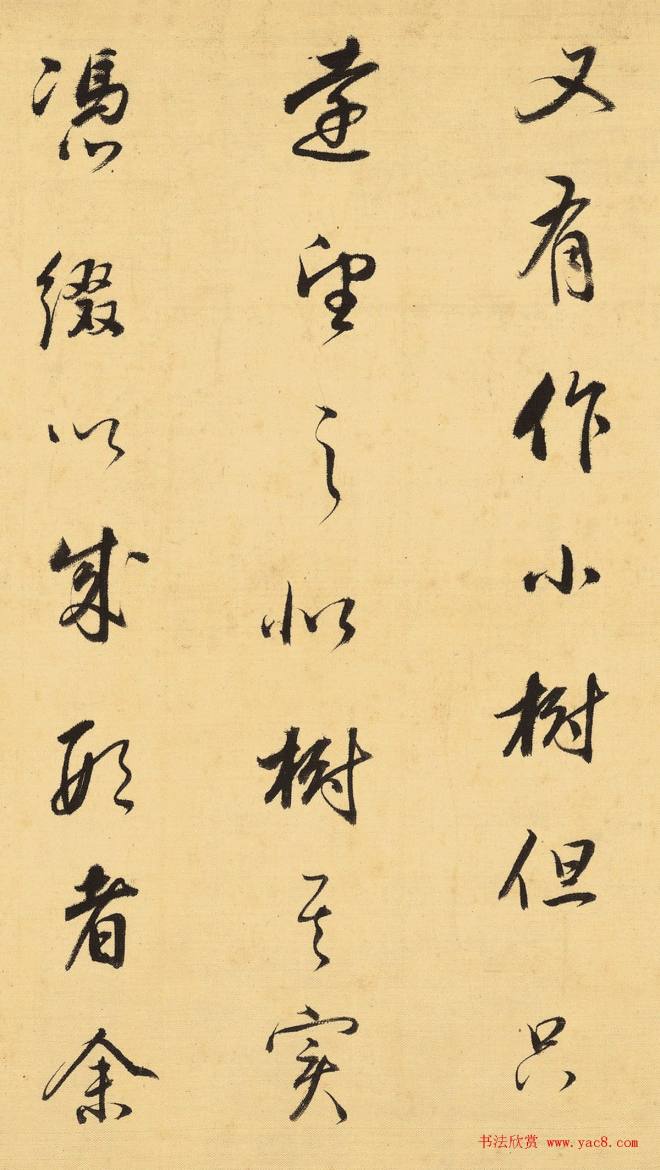 又有作小樹但只
遠望之似樹其實
憑綴以成形者余
书法欣赏 www.yac8.com